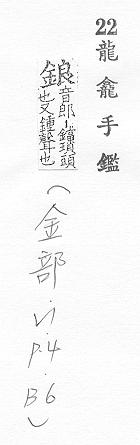 22龍龕手鑑
鋃音郎鋃鐺瑣頭
也又鍾聲也
（金部.VI.P.4.B6）